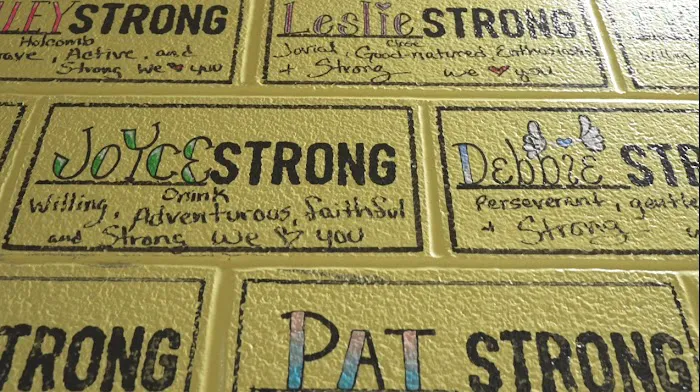 LEYSTRONG
Holcomb
rave, Active, and
Strong we ♥ you
LeslieSTRONG
Jovial, Good-natured, Enthusias
+ Strong we ♥ you
JOYCESTRONG
Drink
Willing, Adventurous, faithful
and Strong we ♡ you
Debbie STR
Perseverant, gentl
+ Strong
TRONG
PAT STRONG